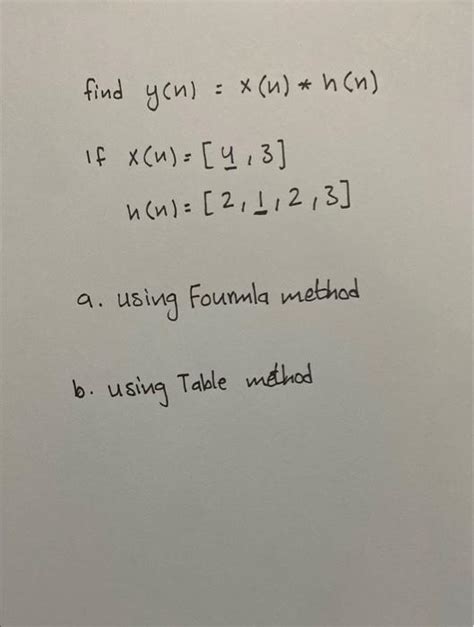 find y(n) = x(n) * h(n)
If x(n) = [4, 3]
h(n) = [2, 1, 2, 3]
a. using Foumla method
b. using Table method